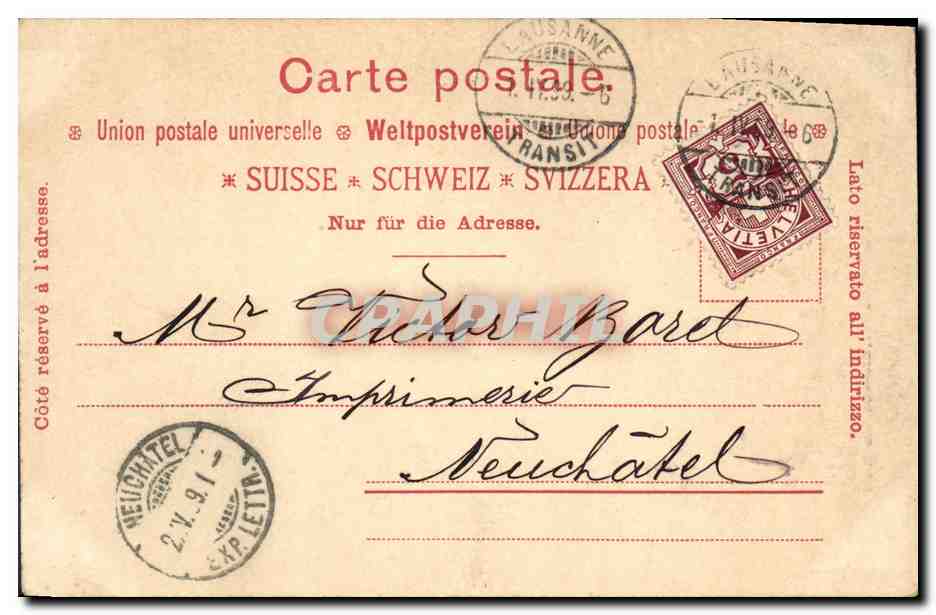 Carte postale.
Union postale universelle Weltpostverein Unione postale
SUISSE SCHWEIZ SVIZZERA
Nur für die Adresse.
Côté réservé à l'adresse.
Lato riservato all' indirizzo.
LAUSANNE
TRANSIT
LAUSANNE
TRANSIT
HELVETIA
FRANCO
CPARAMA.COM
Mr Victor Boret
Imprimerie
Neuchâtel
NEUCHÂTEL
EXP. LETTR.